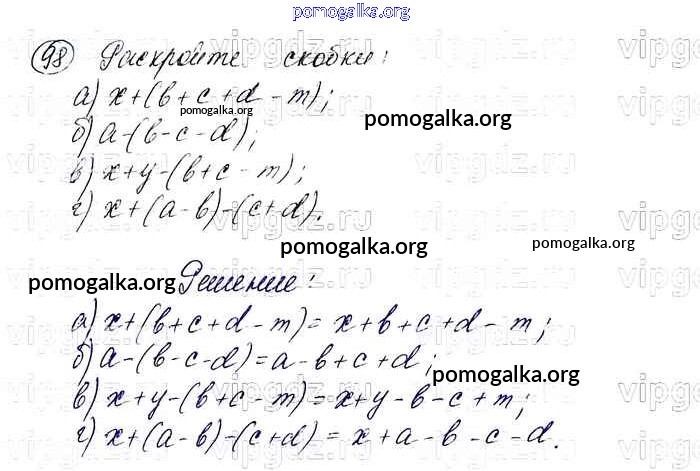 pomogalka.org
98 Раскройте скобки:
а) x+(b+c+d-m);
pomogalka.org
pomogalka.org
б) a-(b-c-d);
в) x+y-(b+c-m);
г) x+(a-b)-(c+d).
pomogalka.org
pomogalka.org
pomogalka.org
Решение:
а) x+(b+c+d-m)=x+b+c+d-m;
б) a-(b-c-d)=a-b+c+d;
pomogalka.org
в) x+y-(b+c-m)=x+y-b-c+m;
г) x+(a-b)-(c+d)=x+a-b-c-d.